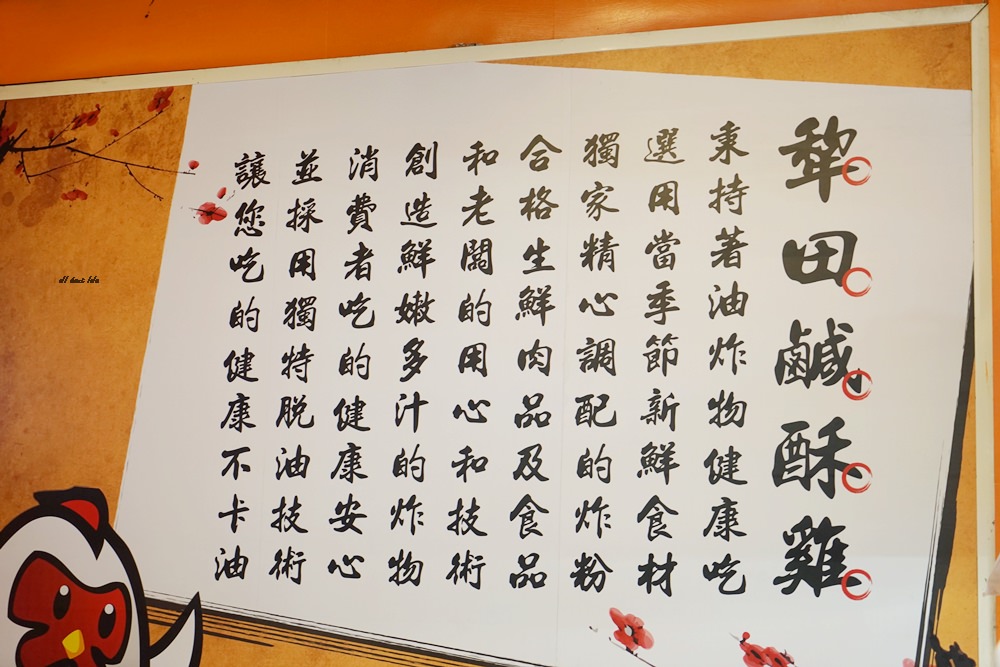 犂田鹹酥雞
秉持著油炸物健康吃
選用當季節新鮮食材
獨家精心調配的炸粉
合格生鮮肉品及食品
和老闆的用心和技術
創造鮮嫩多汁的炸物
消費者吃的健康安心
並採用獨特脫油技術
讓您吃的健康不卡油